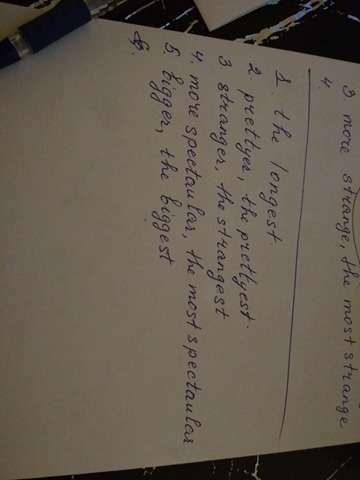 3 more strange, the most strange
4.
1. the longest.
2 prettyer, the prettyest.
3 stranger, the strangest
4. more spectaular, the most spectaular
5 bigger, the biggest
6.